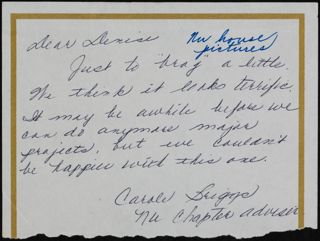 Dear Denise
Nu house
pictures
Just to "brag" a little.
We think it looks terrific.
It may be awhile before we
can do anymore major
projects, but we couldn't
be happier with this one.
Carole Griggs
Nu Chapter advisor